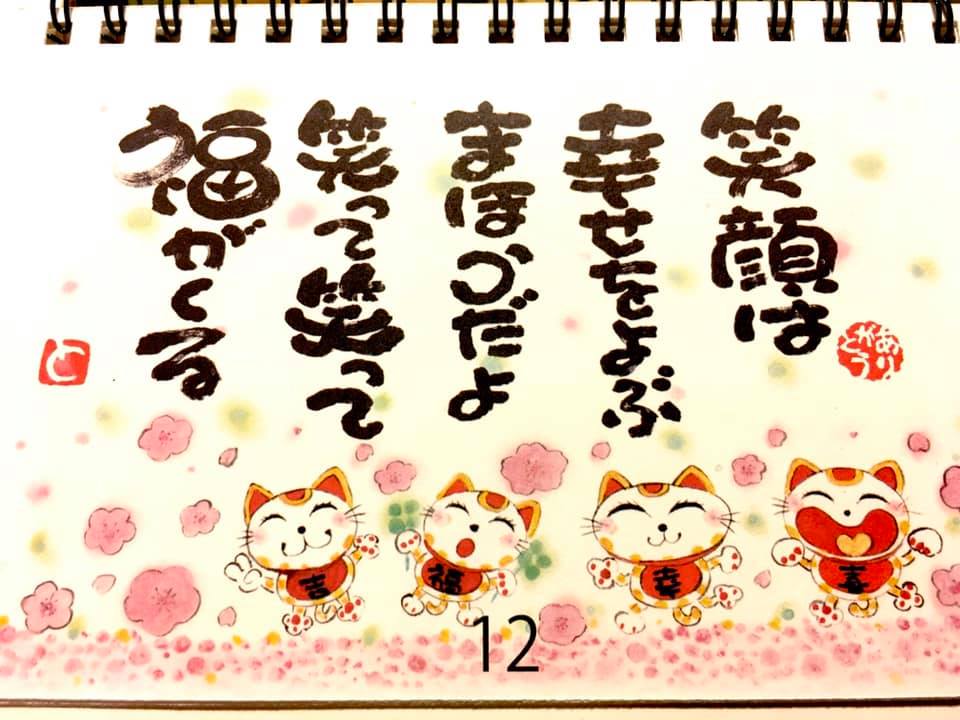 笑顔は
幸せをよぶ
まほうだよ
笑って笑って
福がくる
ありがとう
と
吉
福
幸
喜
12